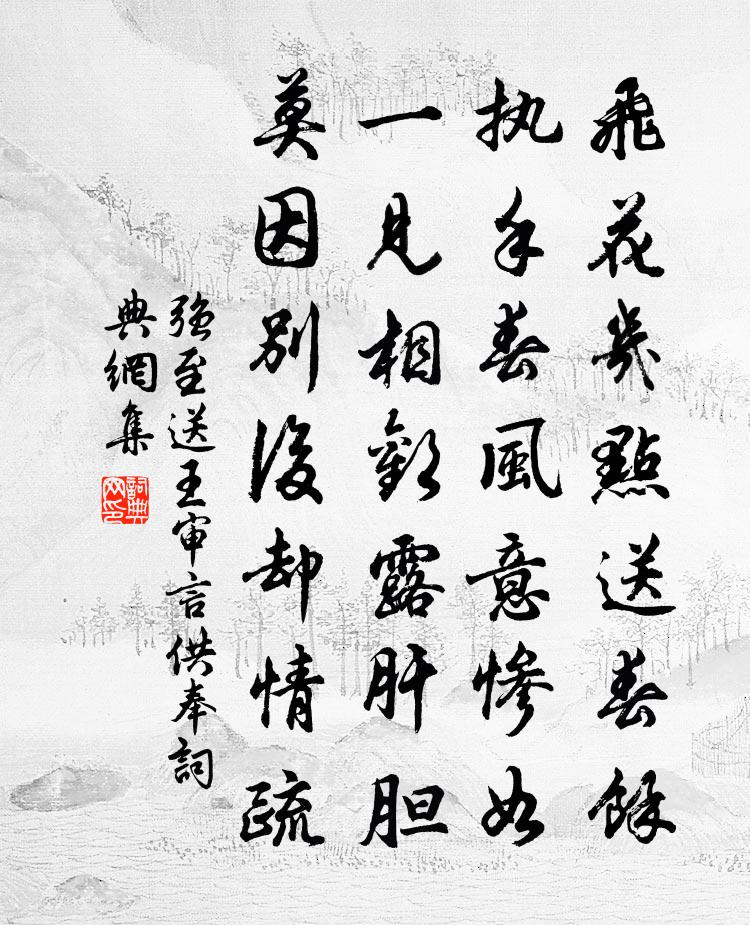 飛花幾點送春餘
执手春風意慘如
一見相歡露肝胆
莫因別後却情疏
强至送王审言供奉詞
典網集
詞典网印